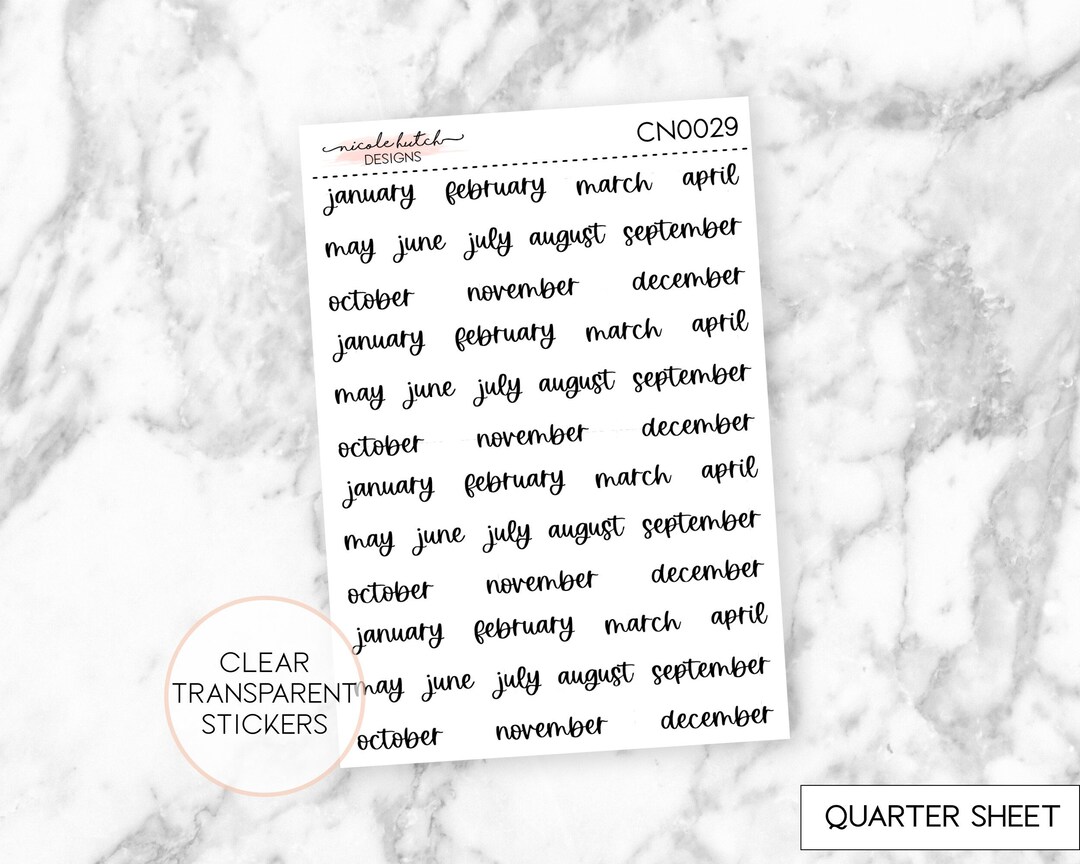 nicole hutch
DESIGNS
CN0029
january february march april
may june july august september
october november december
january february march april
may june july august september
october november december
january february march april
may june july august september
october november december
january february march april
may june july august september
october november december
CLEAR
TRANSPARENT
STICKERS
QUARTER SHEET